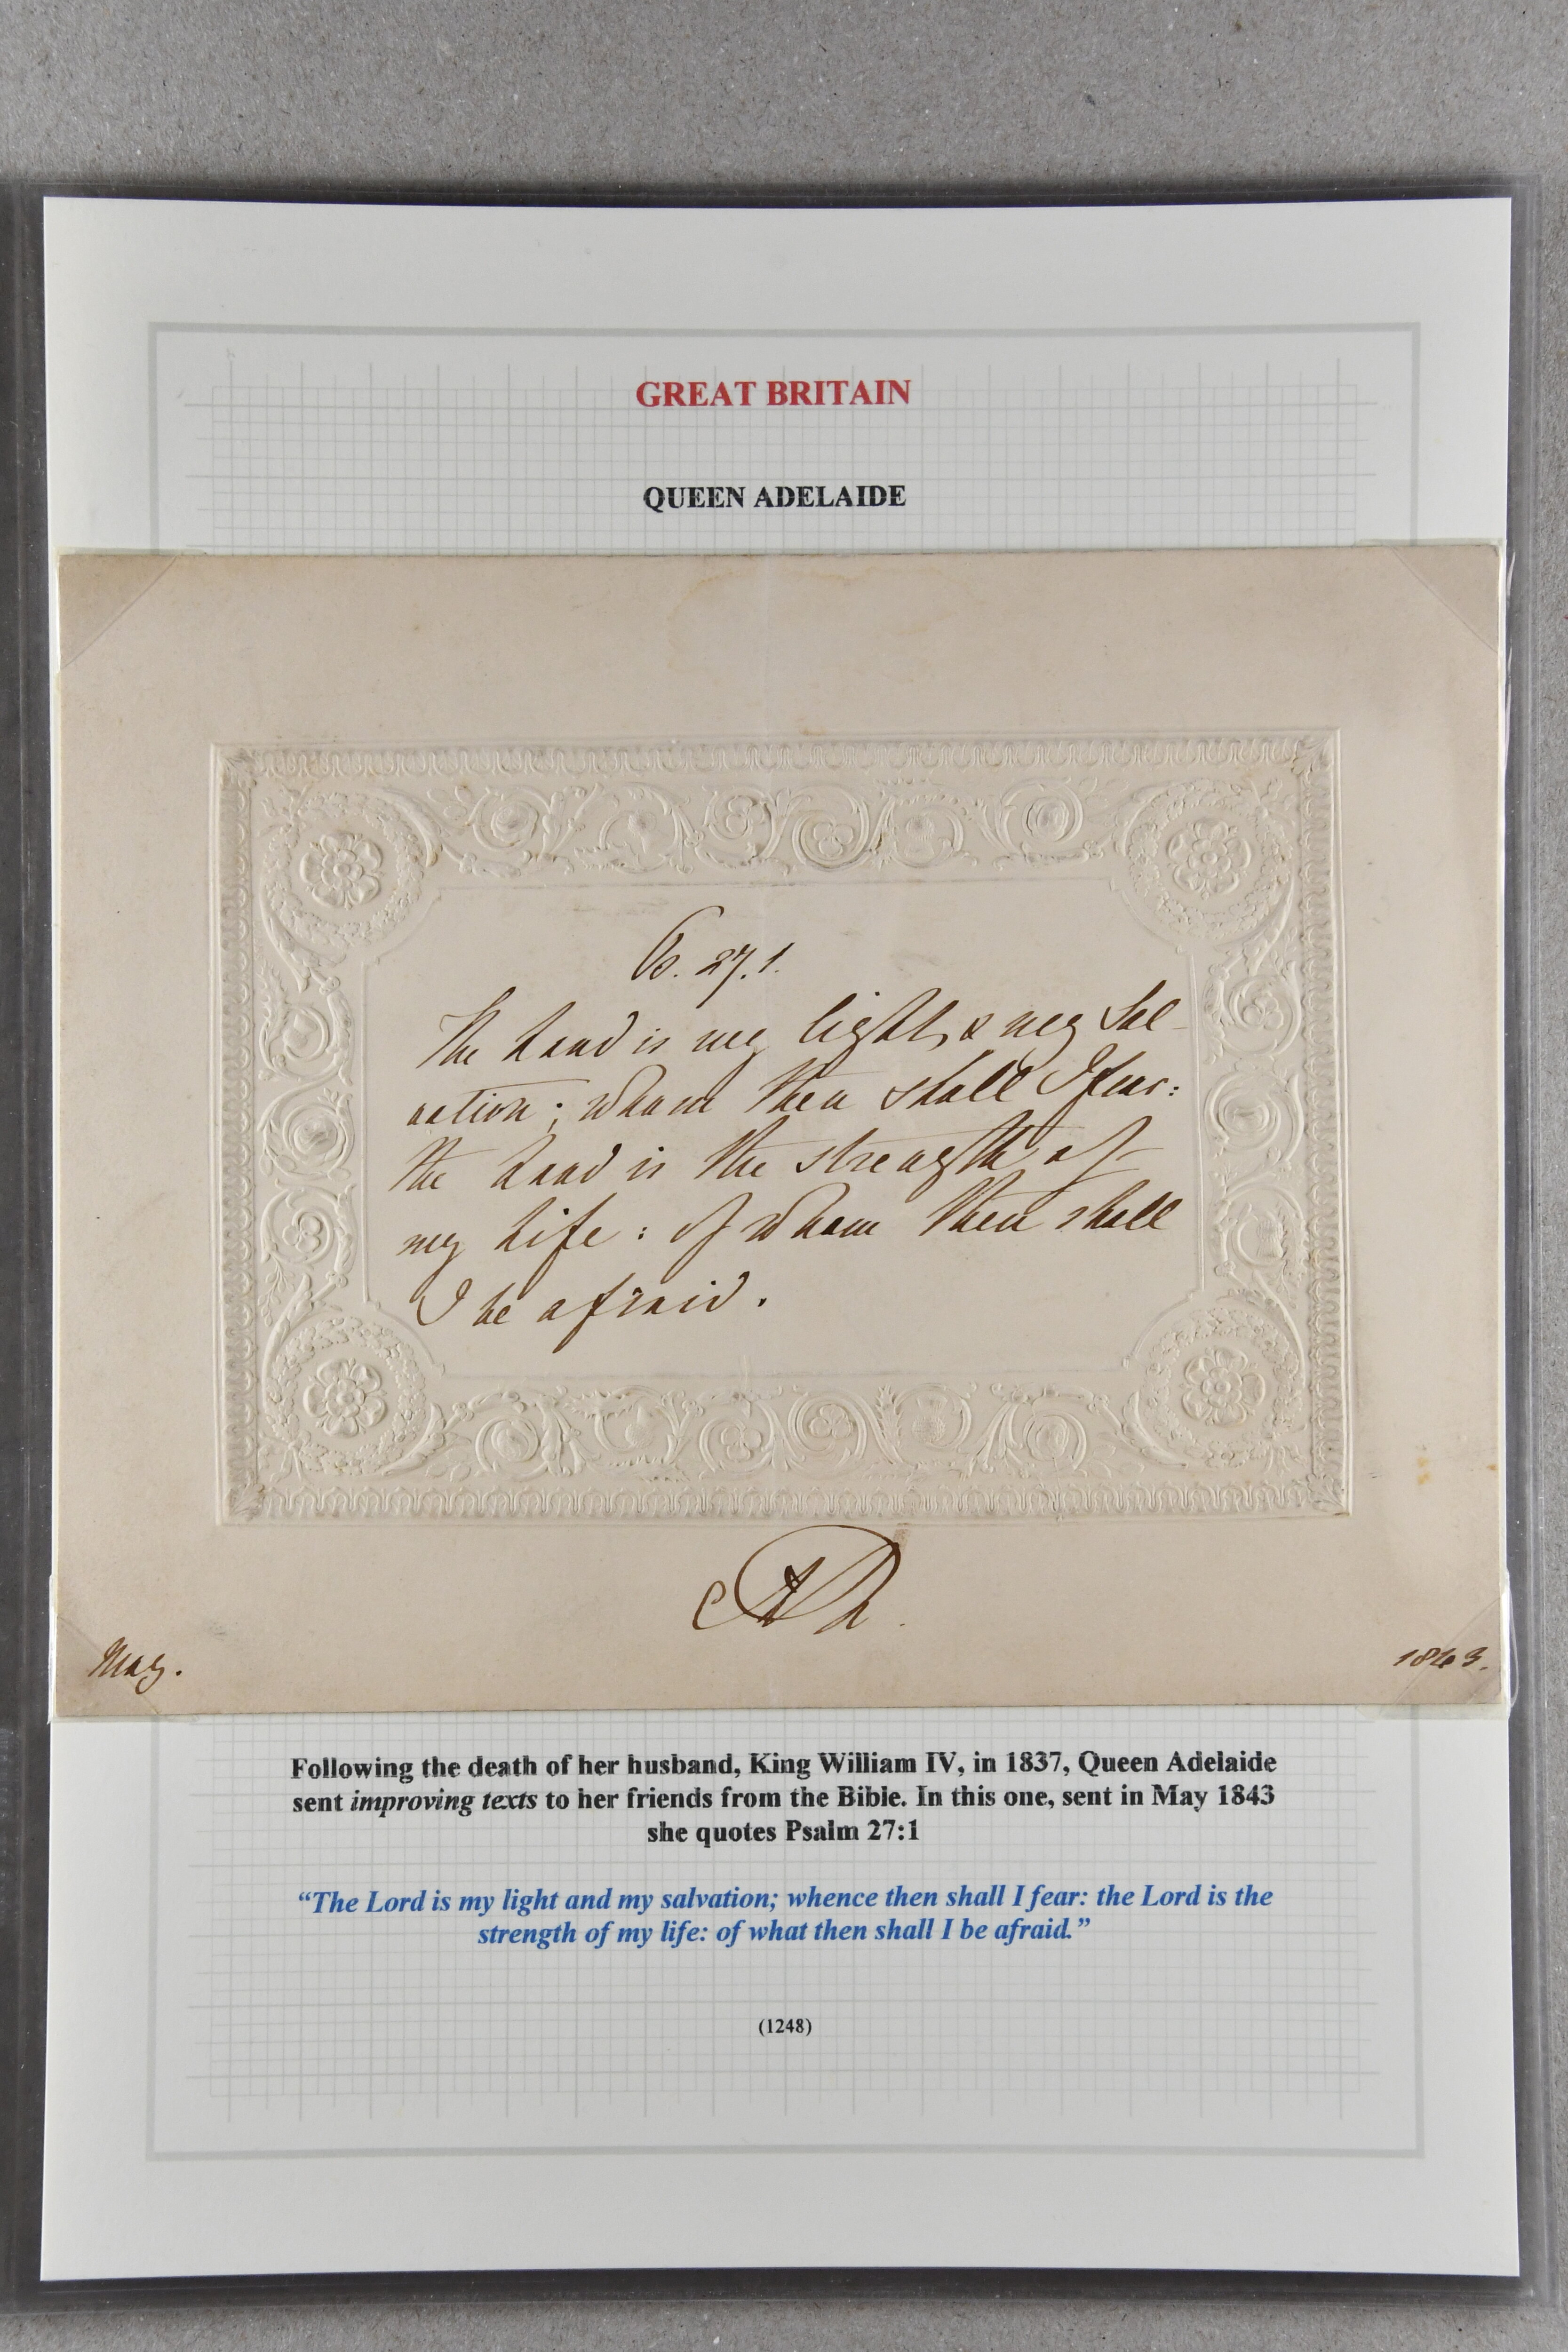 GREAT BRITAIN
QUEEN ADELAIDE
Ps. 27.1.
The Lord is my light, & my Sal-
vation; whom then shall I fear:
the Lord is the strength of
my life: of whom then shall
I be afraid.
AR.
May.
1843.
Following the death of her husband, King William IV, in 1837, Queen Adelaide
sent improving texts to her friends from the Bible. In this one, sent in May 1843
she quotes Psalm 27:1
“The Lord is my light and my salvation; whence then shall I fear: the Lord is the
strength of my life: of what then shall I be afraid.”
(1248)